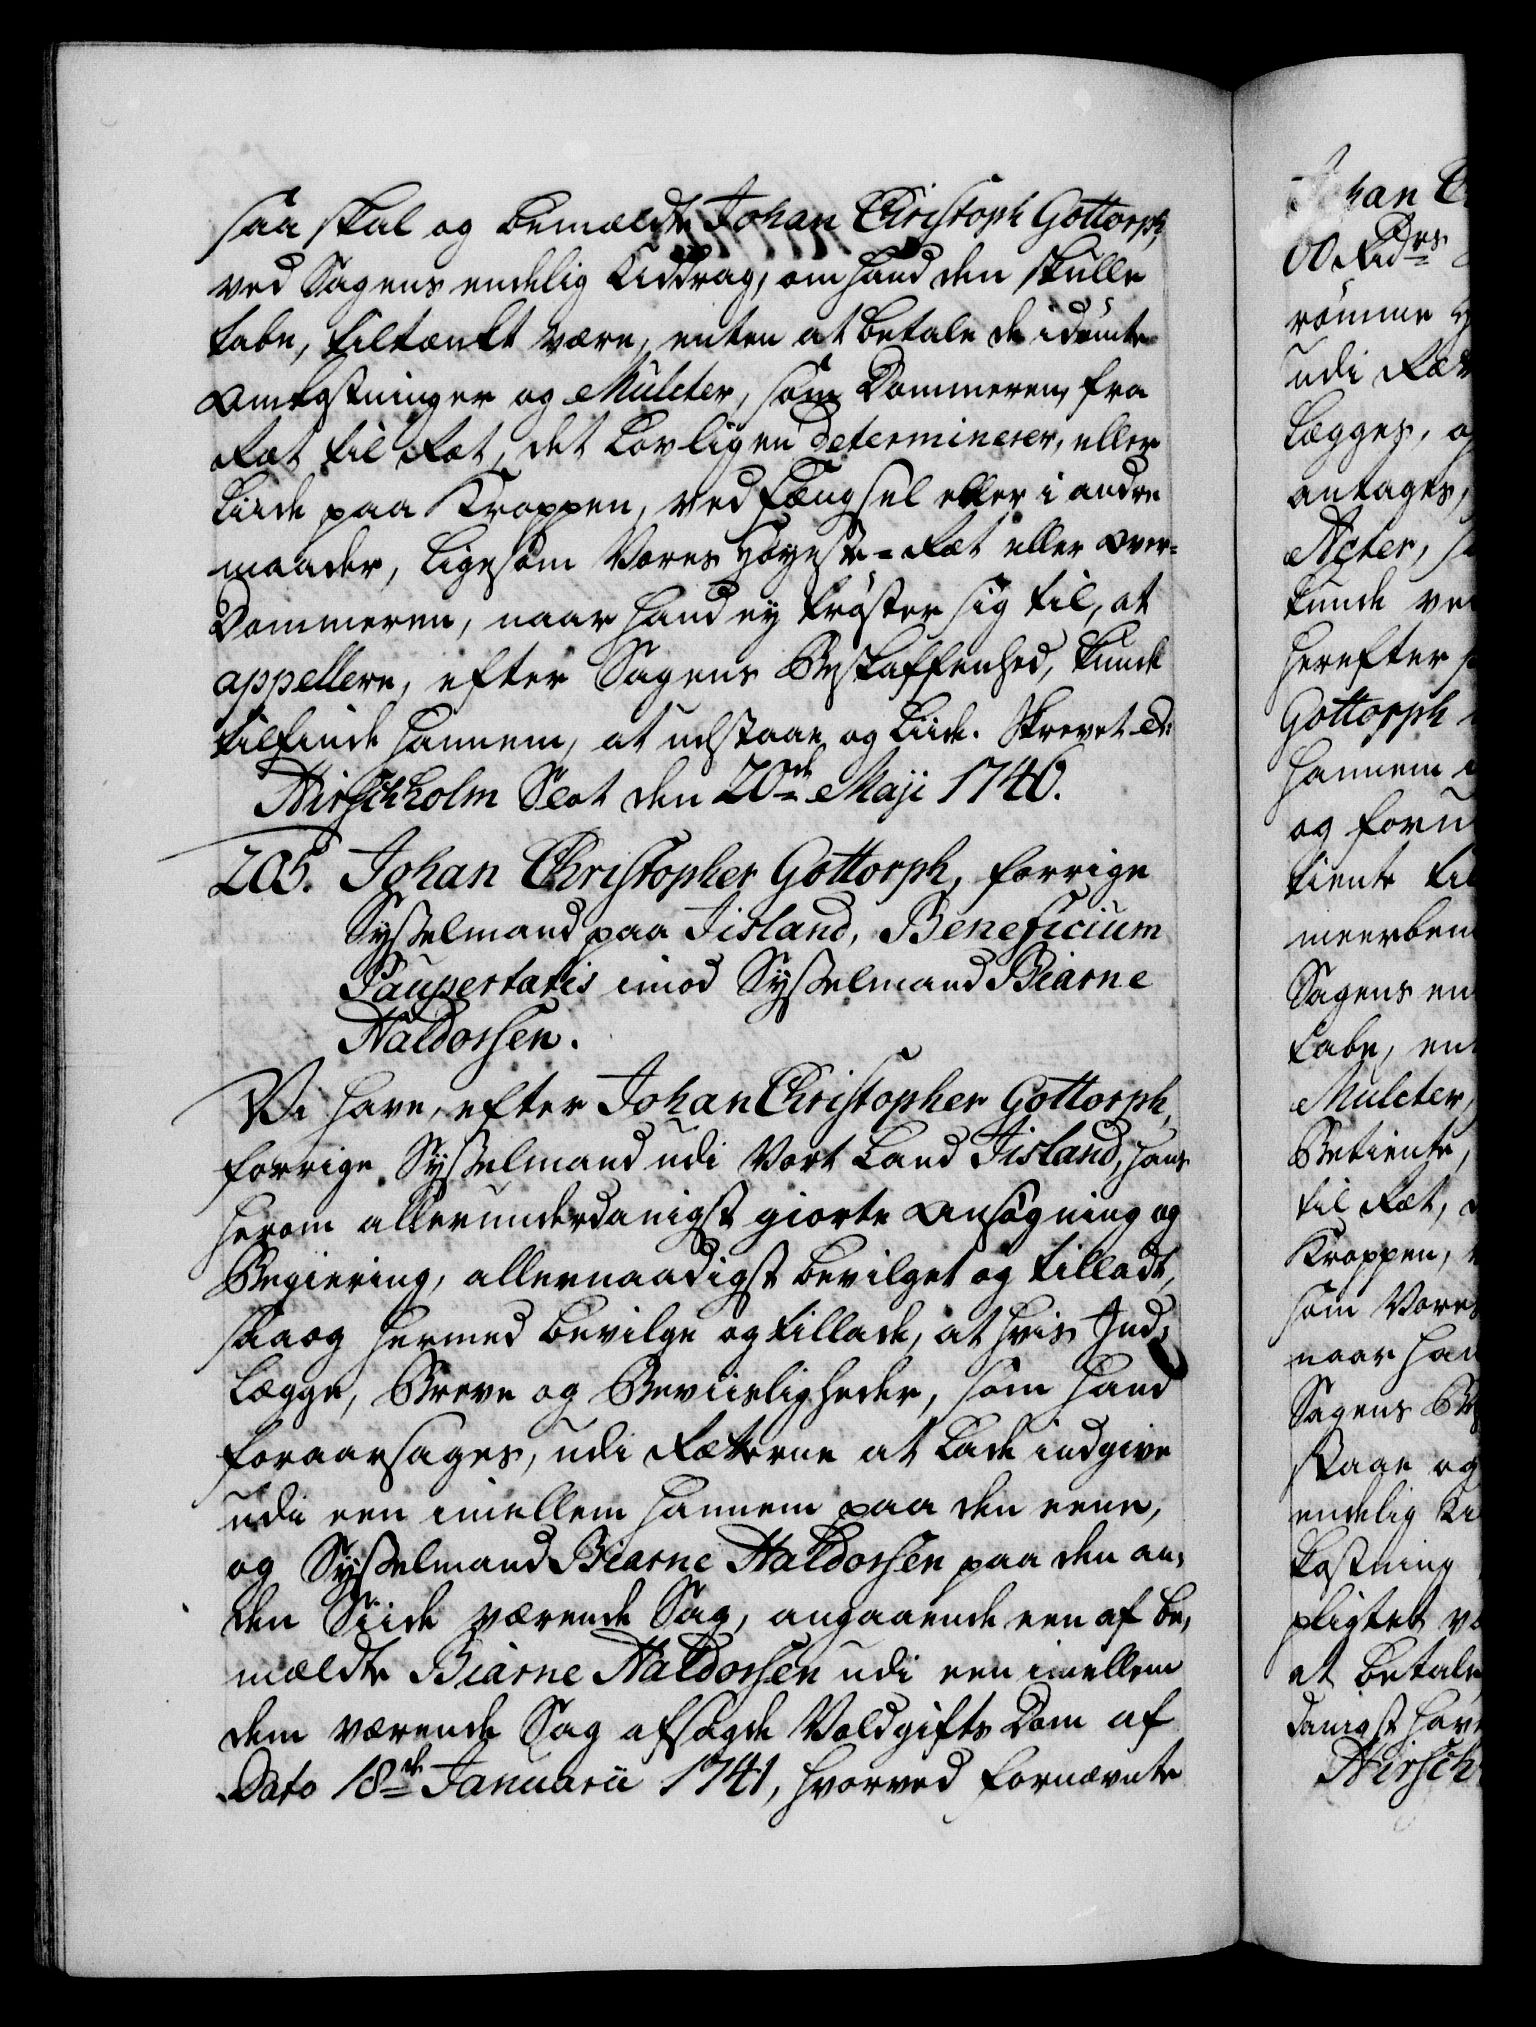 saa skal og bemældte Johan Christoph Gottorph,
ved Sagens endelig Uddrag, om hand den skulle
tabe, tiltænkt være, enten at betale de idömte
Omkostninger og Mulcter, som Dommeren, fra
Ræt til Ræt, det Lovligen determinerer, eller
Liide paa Kroppen, ved Fængsel eller i andre
maader, ligesom Vores Höyeste-Ræt eller Over-
Dommeren, naar hand ey tröster sig til, at
appellere, efter Sagens Beskaffenhed, kunde
tilfinde hannem, at udstaae og Liide. Skrevet &c:
Hirschholm Slot den 20de Maji 1746.
205. Johan Christopher Gottorph, forrige
Sysselmand paa Jisland, Beneficium
Paupertatis imod Sysselmand Biarne
Haldorssen.
Vi have, efter Johan Christopher Gottorph,
forrige Sysselmand udi Vort Land Jisland, hans
herom allerunderdanigst giorte Ansögning og
Begiering, allernaadigst bevilget og tilladt,
saa og hermed bevilge og tillade, at hvis Ind-
Lægge, Breve og Beviisligheder, som hand
foraarsages, udi Rætterne at Lade indgive
udi een imellem hannem paa den eene,
og Sysselmand Biarne Haldorssen paa den an-
den Siide værende Sag, angaaende een af be-
mældte Biarne Haldorssen udi een imellem
dem værende Sag afsagde Voldgifts Dom af
Dato 18de Januarii 1741, hvorved fornævnte
Johan
00 Rdrs
römme
udi Ræt
Lægges,
antages,
Acter,
kunde
herefter
Gottorph
hannem
og
tiente til
meerbem
Sagens en
tabe, en
Mulcter,
Betiente,
til Ræt,
Kroppen,
som Vores
naar han
Sagens
staae og
endelig
kostning
pligtet
at betale
danigst hav
Hirsch